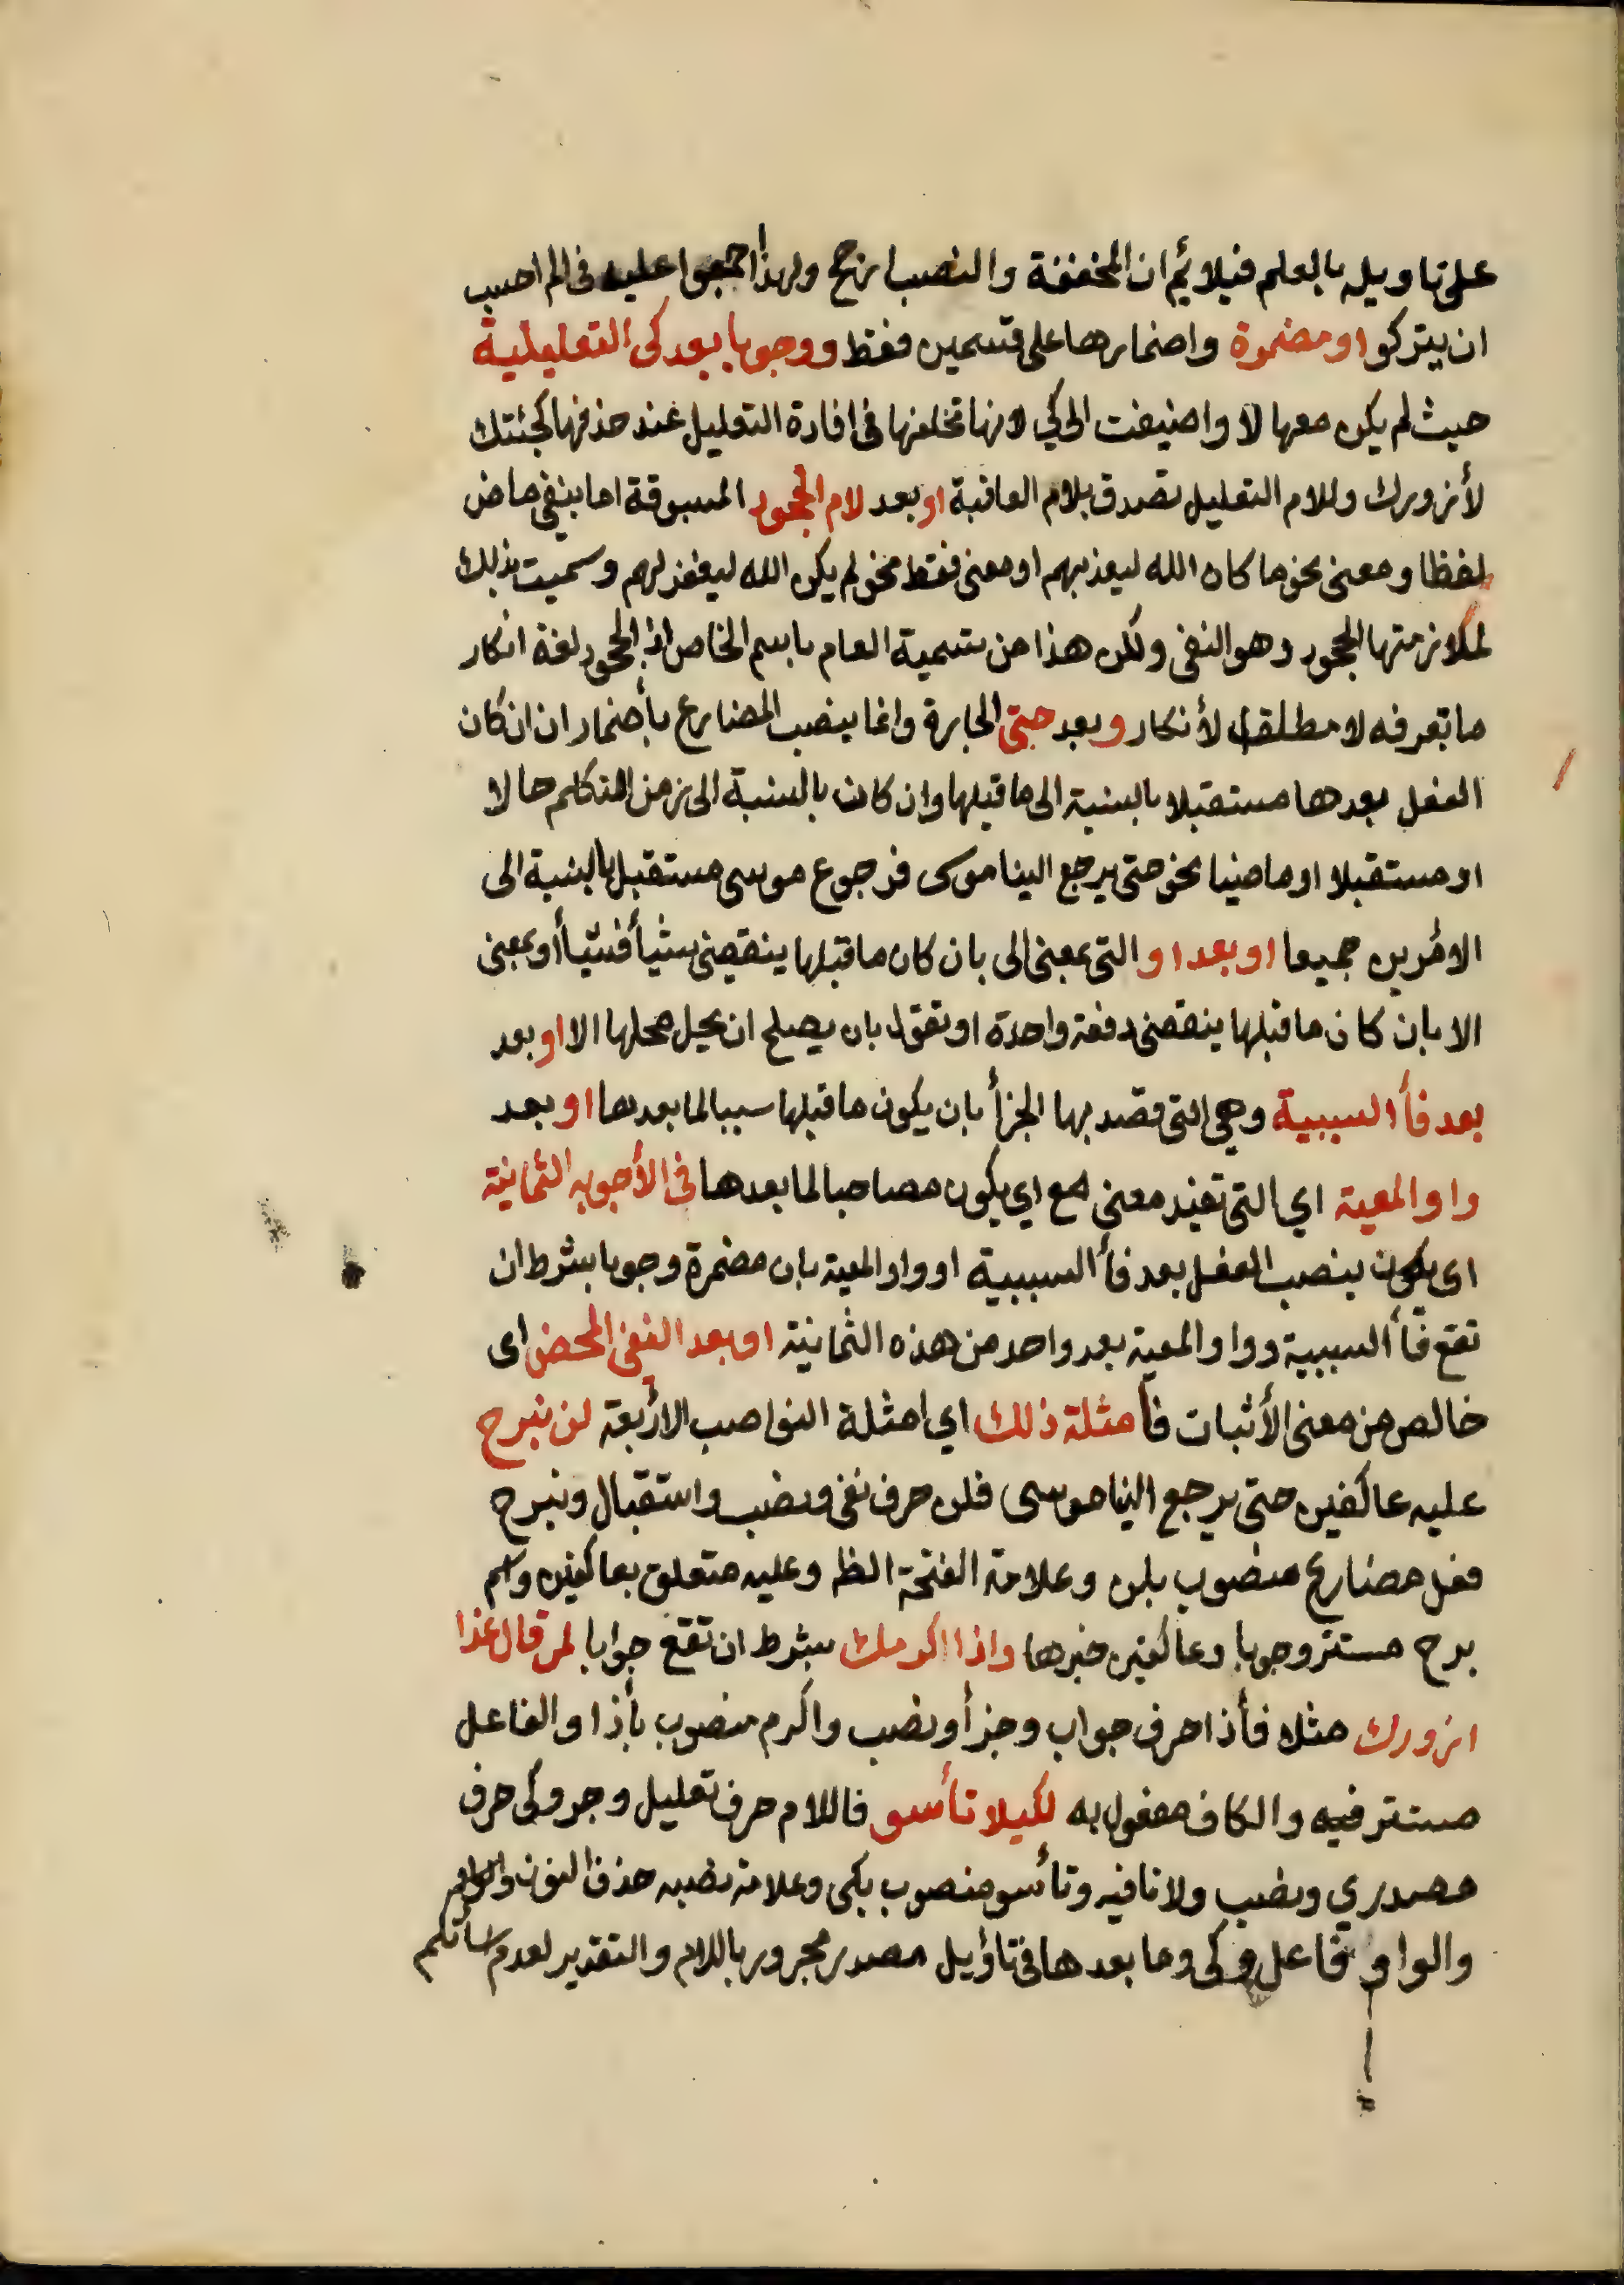 على تاويله بالعلم فيلايم ان المخففة والنصب ارجح ولهذا اجمعوا عليه في الم احسب
ان يتركوا او مضمرة واضمارها على قسمين فقط ووجوبا بعد كى التعليلية
حيث لم يكن معها لا واضيفت الى كي لانها تخلفها فى افادة التعليل عند حذفها كجئتك
لأزورك وللام التعليل تصدق بلام العاقبة او بعد لام الجحود المسبوقة اما بنفي ماض
لفظا ومعنى نحو ما كان الله ليعذبهم او معنى فقط نحو لم يكن الله ليغفر لهم وسميت بذلك
لملازمتها الجحود وهو النفى ولكن هذا من تسمية العام باسم الخاص اذ الجحود لغة انكار
ما تعرفه لا مطلقا لأنكار وبعد حتى الجارة وانما ينصب المضارع بأضمار ان ان كان
الفعل بعدها مستقبلا بالنسبة الى ما قبلها وان كان بالنسبة الى زمن التكلم حالا
او مستقبلا او ماضيا نحو حتى يرجع الينا موسى فرجوع موسى مستقبل بالنسبة الى
الامرين جميعا او بعد او التى بمعنى الى بان كان ما قبلها ينقضى شيأ فشيأ أو بمعنى
الا بان كان ما قبلها ينقضى دفعة واحدة او تقول بان يصلح ان يحل محلها الا او بعد
بعد فأ السببية وهي التى قصد بها الجزأ بان يكون ما قبلها سببا لما بعدها او بعد
واو المعية اي التى تفيد معنى مع اي يكون مصاحبا لما بعدها فى الأجوبه الثمانية
اى يكون ينصب الفعل بعد فأ السببية او واو المعية بان مضمرة وجوبا بشرط ان
تقع فأ السببية وواو المعية بعد واحد من هذه الثمانية او بعد النفى المحض اى
خالص من معنى الأثبات فأمثلة ذلك اي امثلة النواصب الاربعة لن نبرح
عليه عاكفين حتى يرجع الينا موسى فلن حرف نفى ونصب واستقبال ونبرح
فعل مضارع منصوب بلن وعلامة الفتحة الظ وعليه متعلق بعاكفين واسم
برح مستتر وجوبا وعاكفين خبرها واذا اكرمك بشرط ان تقع جوابا لمن قال غذا
ازورك مثلا فأذا حرف جواب وجزأ ونصب واكرم منصوب بأذا والفاعل
مستتر فيه والكاف مفعول به لكيلا تأسو فاللام حرف تعليل وجر وكى حرف
مصدري ونصب ولا نافيه وتأسو منصوب بكى وعلامة نصبه حذف النون
والواو فاعل وكى وما بعدها فى تاؤيل مصدر مجرور باللام والتقدير لعدم اساتكم